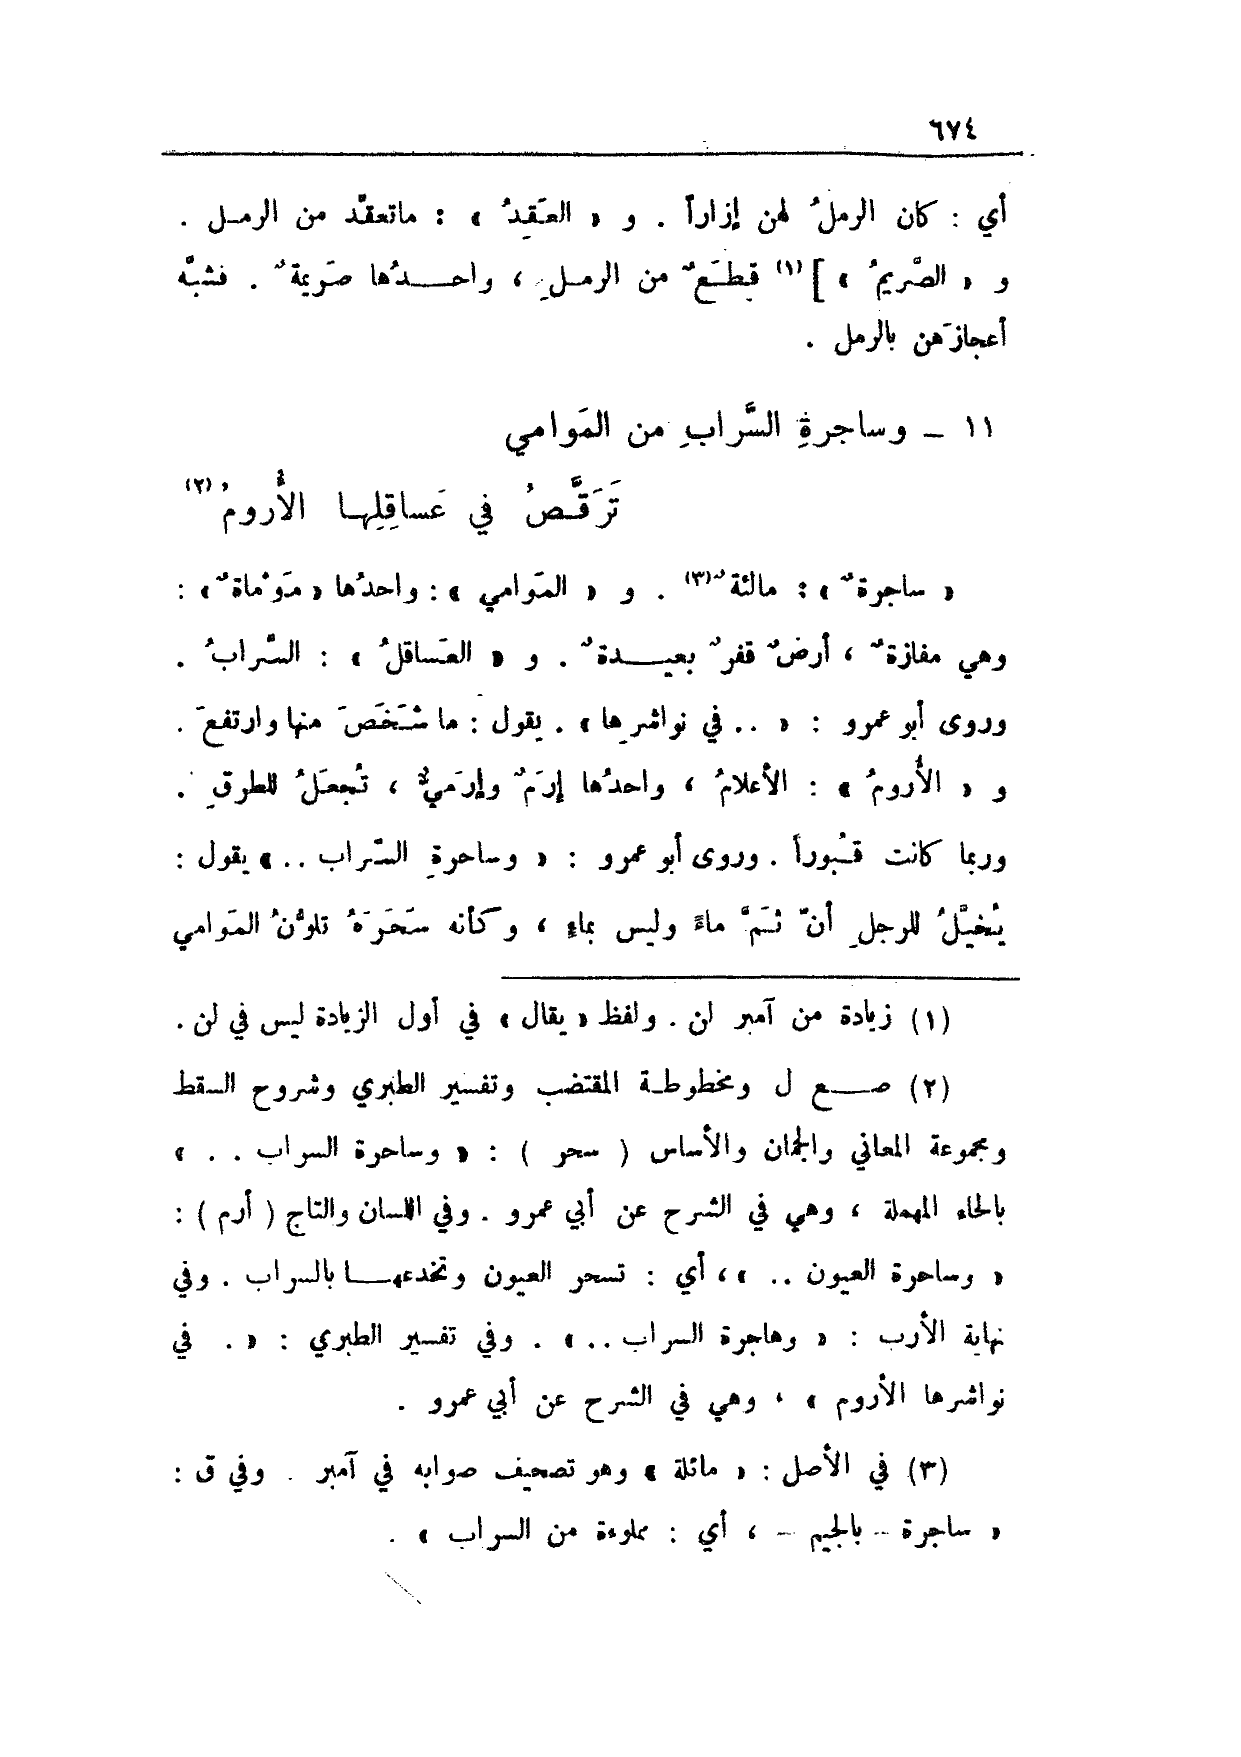 ٦٧٤
أي : كان الرملُ لهن إزاراً . و « العَقِدُ » : ماتعقَّد من الرمـل .
و « الصَّريمُ » ](١) قِطَعٌ من الرمـلِ ، واحـــدُها صَريمةٌ . فشبَّه
أعجازَهن بالرمل .
١١ ـ وساجرةِ السَّرابِ من المَوامي
تَرَقَّـصُ في عَساقِلِهـا الأُرومُ(٢)
« ساجرةٌ » : مالئةٌ(٣) . و « المَوامي » : واحدُها « مَوْماةٌ » :
وهي مفازةٌ ، أرضٌ قفرٌ بعيـــدةٌ . و « العَساقلُ » : السَّرابُ .
وروى أبو عمرو : « .. في نواشرِها » . يقول : ما شَخَصَ منها وارتفعَ .
و « الأُرومُ » : الأعلامُ ، واحدُها إرَمٌ وإرَميٌّ ، تُجعَلُ للطرقِ .
وربما كانت قُبوراً . وروى أبو عمرو : « وساحرةِ السَّراب .. » يقول :
يُخيَّلُ للرجلِ أنّ ثَمَّ ماءً وليس بماءٍ ، وكأنه سَحَرَهُ تلوُّنُ المَوامي
(١) زيادة من آمبر لن . ولفظ « يقال » في أول الزيادة ليس في لن .
(٢) صــع ل ومخطوطـة المقتضب وتفسير الطبري وشروح السقط
ومجموعة المعاني والجمان والأساس ( سحر ) : « وساحرة السراب . . »
بالحاء المهملة ، وهي في الشرح عن أبي عمرو . وفي اللسان والتاج ( أرم ) :
« وساحرة العيون .. » ، أي : تسحر العيون وتخدعهــا بالسراب . وفي
نهاية الأرب : « وهاجرة السراب .. » . وفي تفسير الطبري : « . في
نواشرها الأروم » ، وهي في الشرح عن أبي عمرو .
(٣) في الأصل : « مائلة » وهو تصحيف صوابه في آمبر . وفي ق :
« ساجرة - بالجيم - ، أي : مملوءة من السراب » .